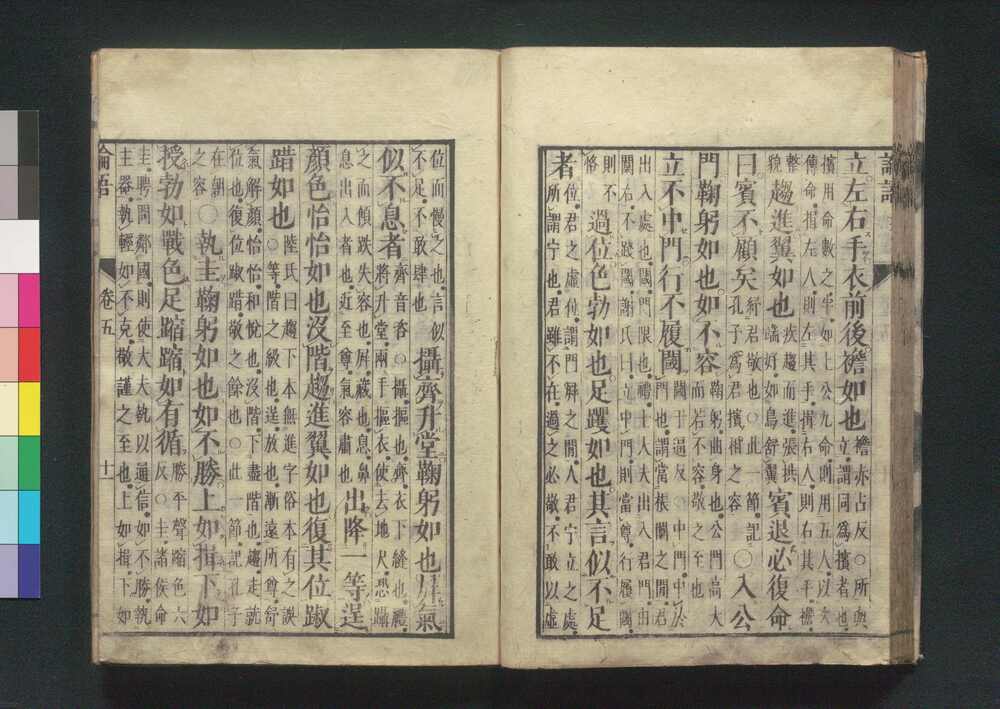 論語
立左右手衣前後襜如也
襜亦占反○所與
立謂同爲擯者也
擯用命數之半如上公九命則用五人以次
傳命揖左人則左其手揖右人則右其手襜
整
貌
趨進翼如也
疾趨而進張拱
端好如鳥舒翼
賓退必復命
曰賓不顧矣
紓君敬也○此一節記
孔子爲君擯相之容
○入公
門鞠躬如也如不容
鞠躬曲身也公門高大
而若不容敬之至也
立不中門行不履閾
閾于逼反○中門中於
門也謂當棖闑之間君
出入處也閾門限也禮士大夫出入君門由
闑右不踐閾謝氏曰立中門則當尊行履閾
則不
恪
過位色勃如也足躩如也其言似不足
者
位君之虛位謂門屏之間人君宁立之處
所謂宁也君雖不在過之必敬不敢以虛
位而慢之也言似
不足不敢肆也
攝齊升堂鞠躬如也屏氣
似不息者
齊音咨○攝摳也齊衣下縫也禮
將升堂兩手摳衣使去地尺恐躡
之而傾跌失容也屏藏也息鼻
息出入者也近至尊氣容肅也
出降一等逞
顏色怡怡如也沒階趨進翼如也復其位踧
踖如也
陸氏曰趨下本無進字俗本有之誤
○等階之級也逞放也漸遠所尊舒
氣解顏怡怡和悅也沒階下盡階也趨走就
位也復位踧踖敬之餘也○此一節記孔子
在朝
之容
○執圭鞠躬如也如不勝上如揖下如
授勃如戰色足蹜蹜如有循
勝平聲蹜色六
反○圭諸侯命
圭聘問鄰國則使大夫執以通信如不勝執
主器執輕如不克敬謹之至也上如揖下如
論語 卷五 十一